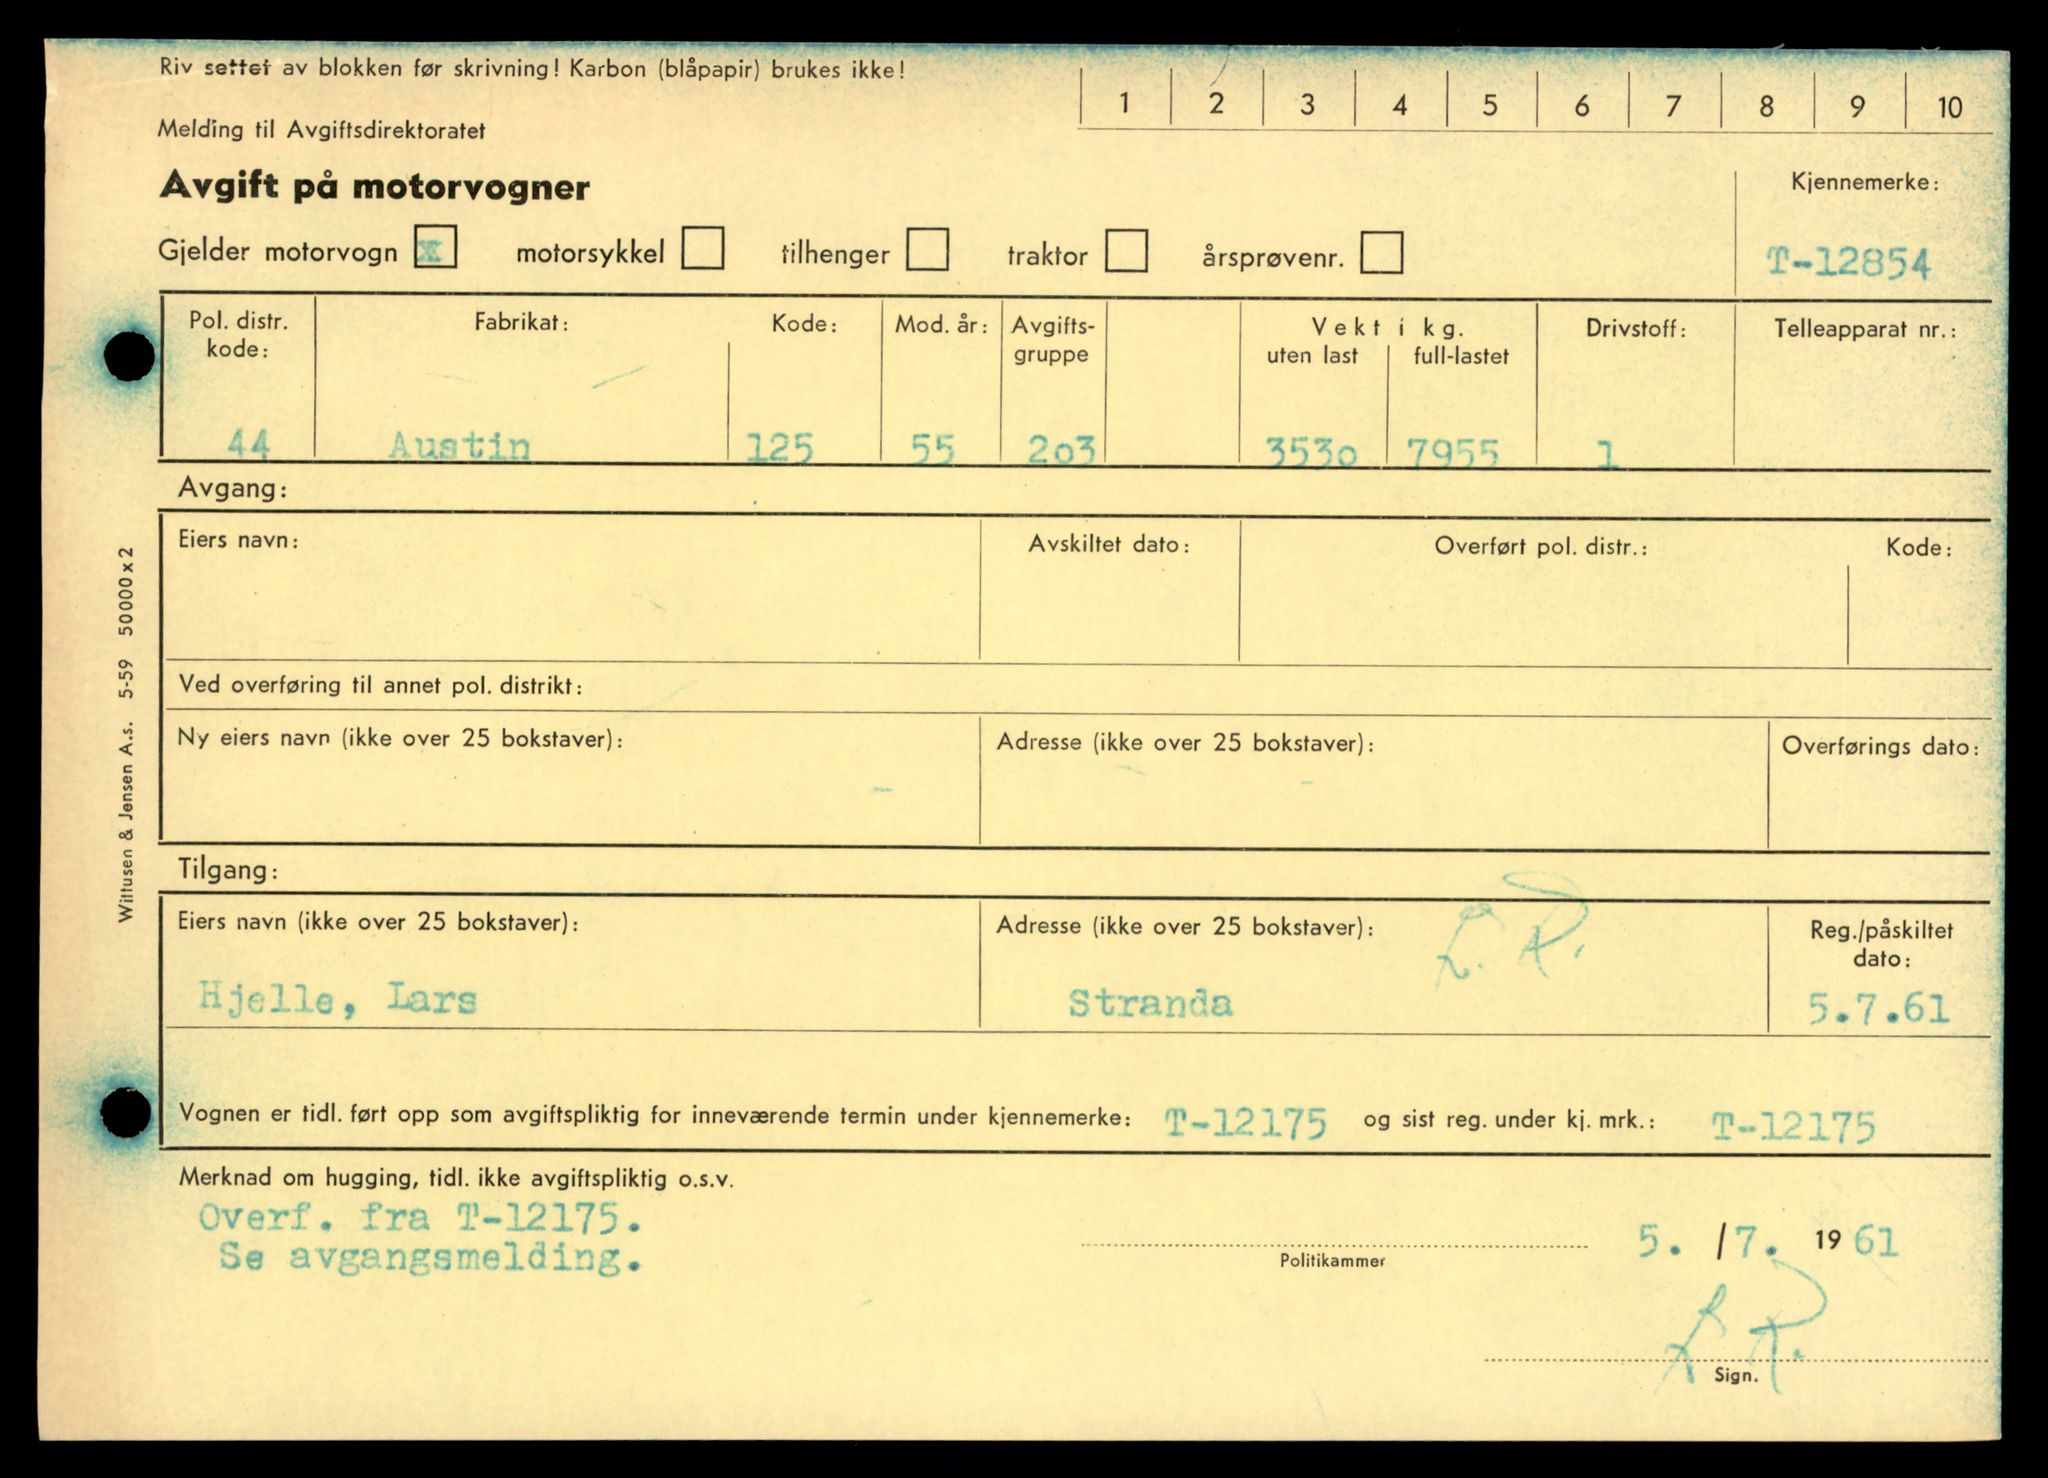 Riv settet av blokken før skrivning! Karbon (blåpapir) brukes ikke!
1 2 3 4 5 6 7 8 9 10
Melding til Avgiftsdirektoratet
Avgift på motorvogner
Kjennemerke:
Gjelder motorvogn x motorsykkel tilhenger traktor årsprøvenr.
T-12854
Pol. distr. kode: Fabrikat: Kode: Mod. år: Avgifts-gruppe Vekt i kg. uten last full-lastet Drivstoff: Telleapparat nr.:
44 Austin 125 55 203 3530 7955 1
Avgang:
Eiers navn: Avskiltet dato: Overført pol. distr.: Kode:
Ved overføring til annet pol. distrikt:
Ny eiers navn (ikke over 25 bokstaver): Adresse (ikke over 25 bokstaver): Overførings dato:
Tilgang:
Eiers navn (ikke over 25 bokstaver): Adresse (ikke over 25 bokstaver): L. R. Reg./påskiltet dato:
Hjelle, Lars Stranda 5.7.61
Vognen er tidl. ført opp som avgiftspliktig for inneværende termin under kjennemerke: T-12175 og sist reg. under kj. mrk.: T-12175
Merknad om hugging, tidl. ikke avgiftspliktig o.s.v.
Overf. fra T-12175.
Se avgangsmelding.
5. /7. 1961
Politikammer
L R.
Sign.
Wiltusen & Jensen A.s. 5-59 50000 x 2